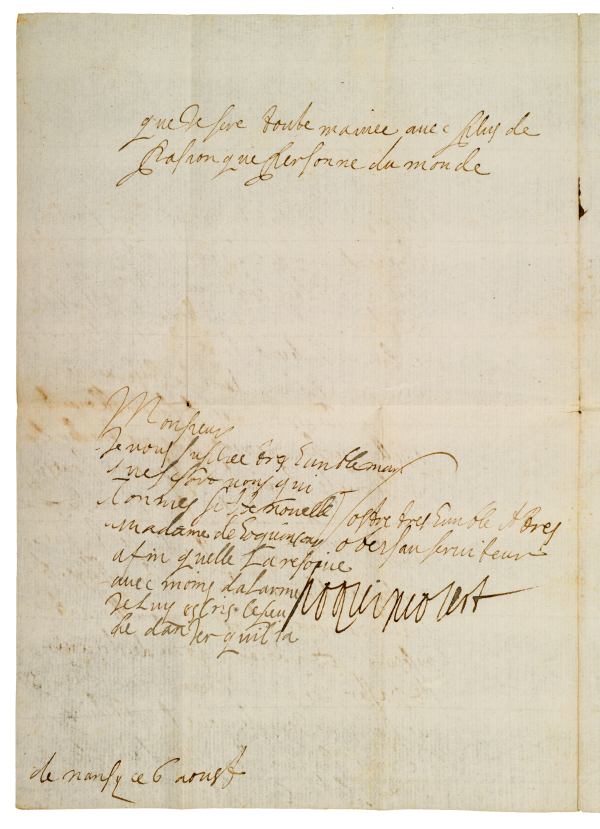 que desire toute ma vie avec plus de
pasion que personne du monde
Monsieur
Je vous suplice tres humblemant
qui
nouvelle
madame de hoquincour
afin quelle la resoive
avec moins dalarme
Je luy ecris le peu
de danger quil ia
vostre tres humble & tres
obeisan serviteur
hoquincourt
de nansy ce 6 aoust